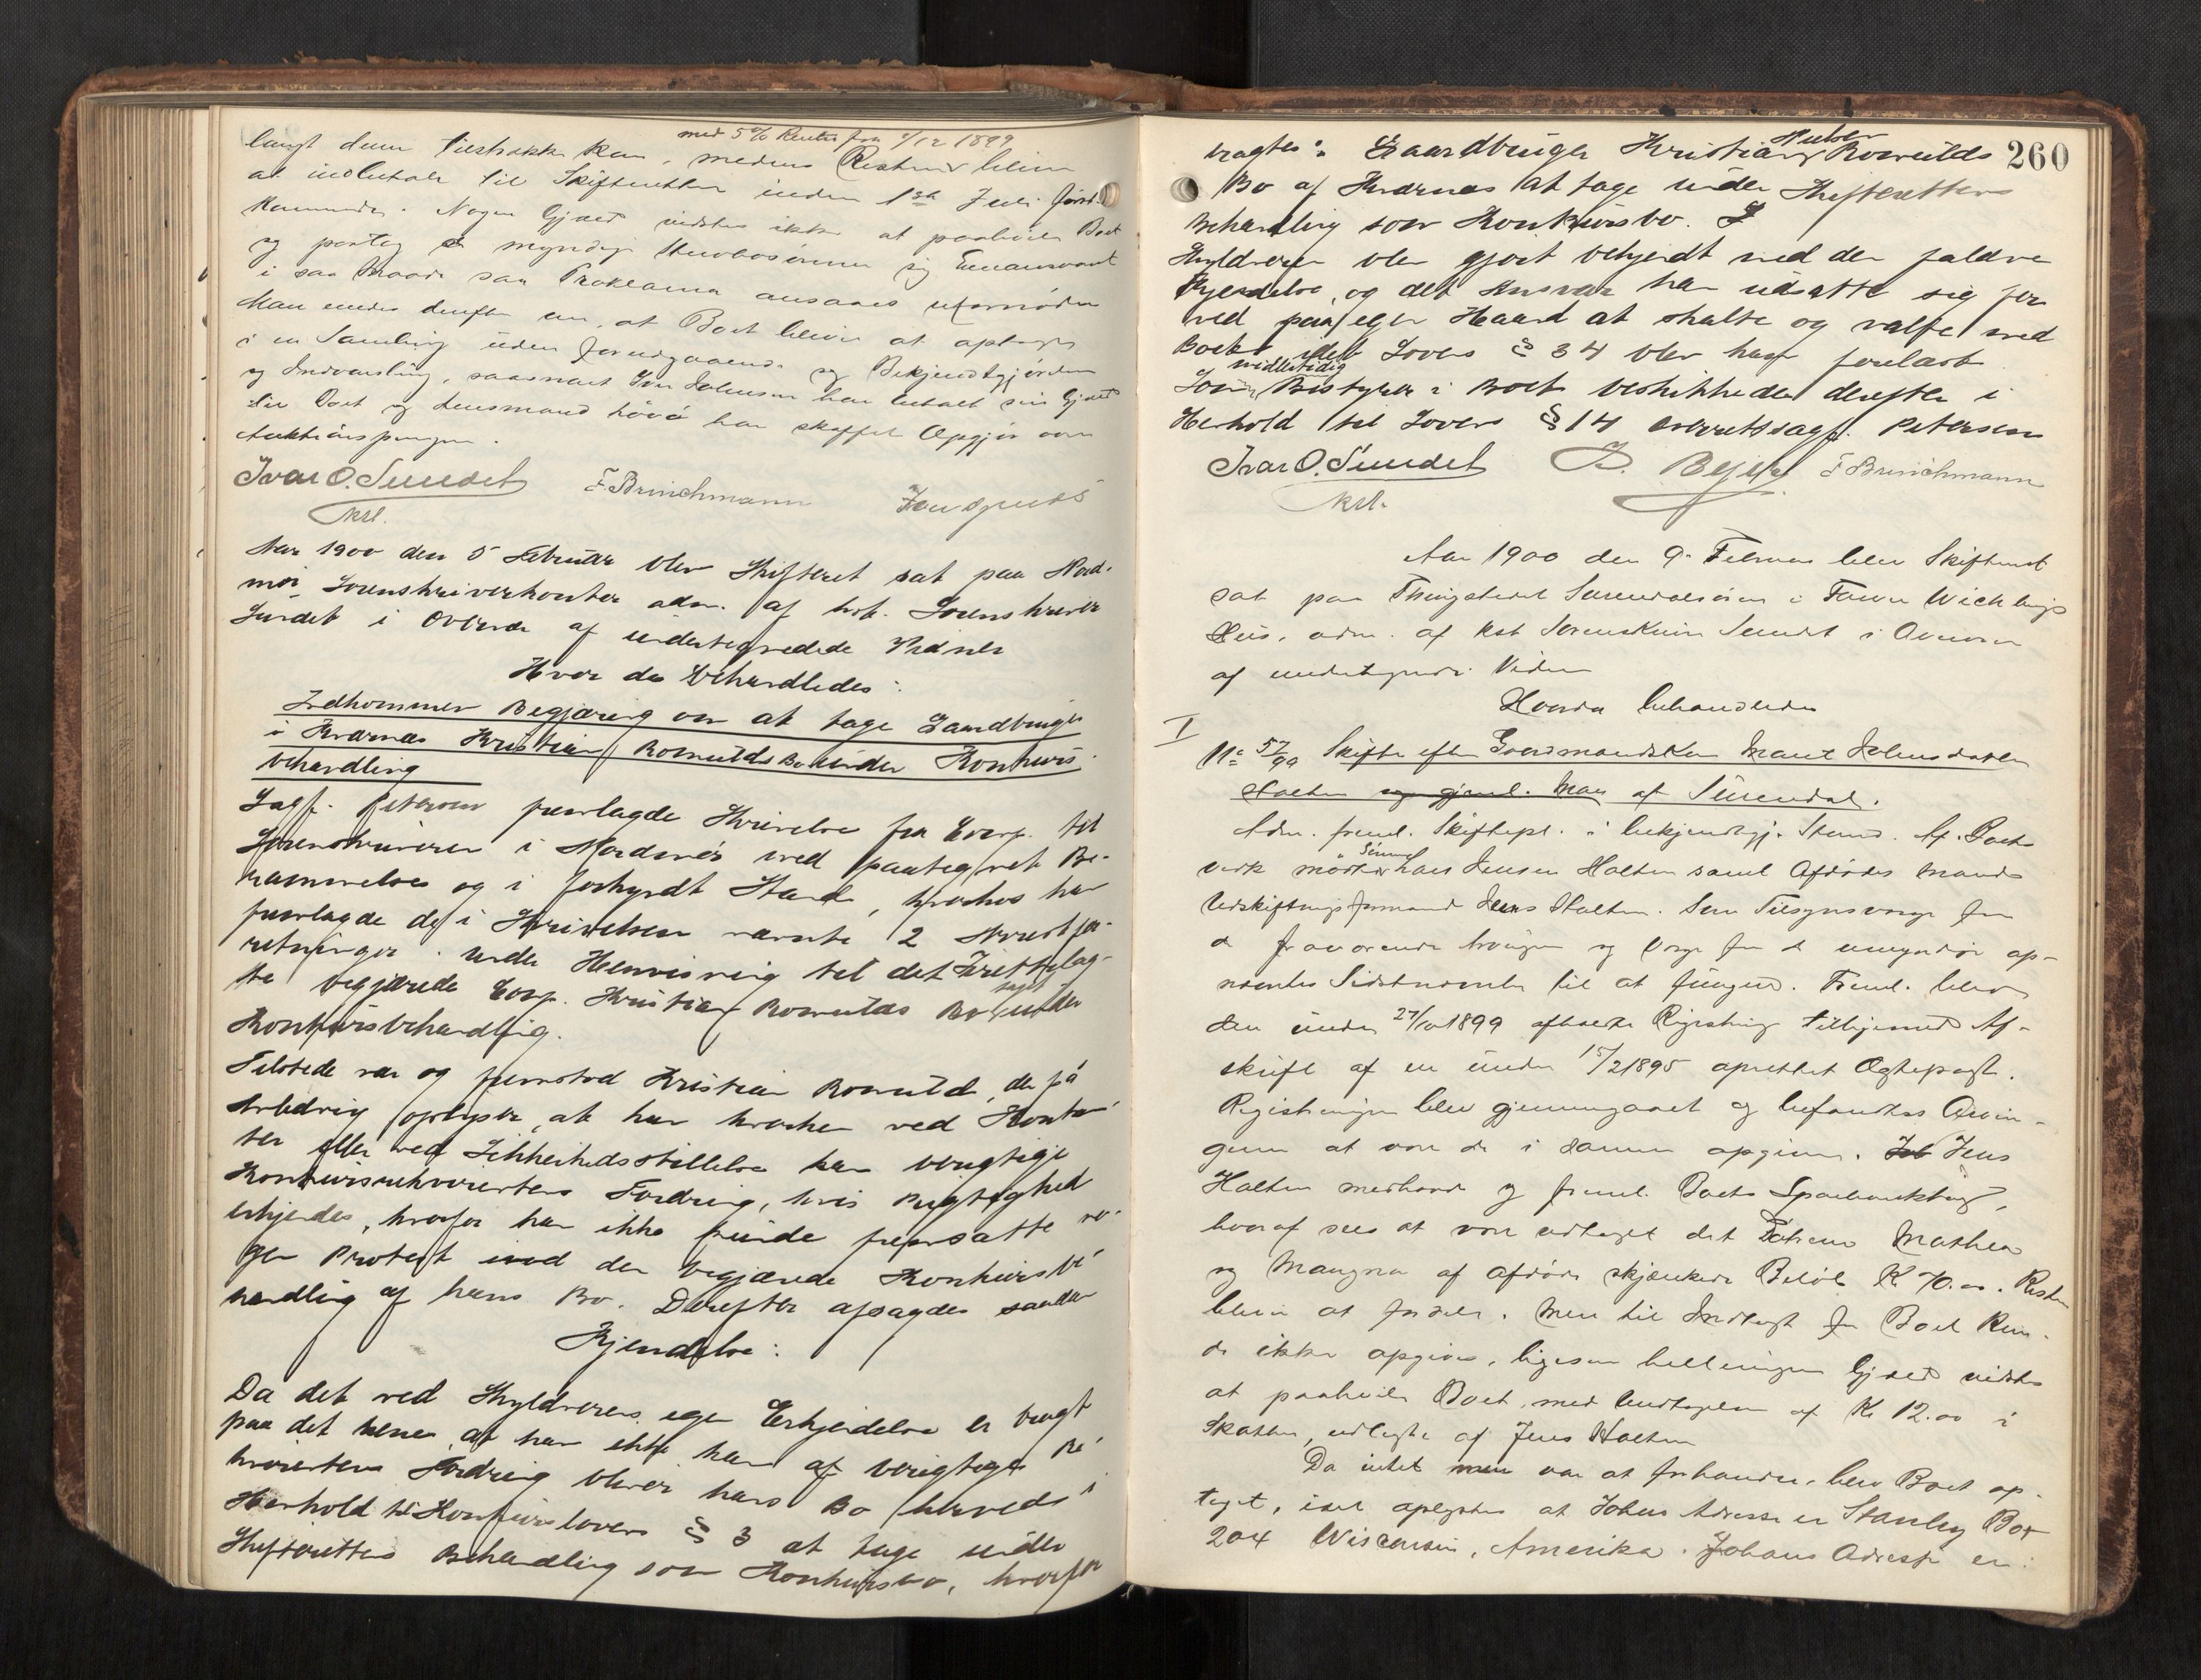 med 5% Renter fra 1/12 1899
langt denne tilstrække kan, medens Resten bliver
at indbetale til Skifteretten inden 1ste Juli førstk.
kommende. Nogen Gjæld vidstes ikke at paahvile Boet
og paatog de myndige Eneansvaret
i saa Maade saa Proklama ansaaes ufornøden
Man enedes derefter om, at Boet bliver at optages
i en Samling uden forudgaaende Bekjendtgjørelse
og Indvarsling, saasnart Iver Johnsen har betalt sin Gjæld
til Boet og Lensmand har skaffet Opgjør over
Auktionspengene.
Ivar O. Sundet F. Brinchmann
kst.
Aar 1900 den 5 Februar blev Skifteret sat paa Nord-
mør Sorenskriverkontor adm. af kst. Sorenskriver
Sundet i Overvær af undertegnede Vidner
Hvor da behandledes:
Indkommen Begjæring om at tage Gaardbruger
i Kværnæs Kristian Romulds Bo under Konkurs-
behandling
Sagf. Petersen fremlagde Skrivelse fra til
Sorenskriveren i Nordmør med paategnet Be-
rammelse og i forkyndt Stand, hvorhos han
fremlagde de i Skrivelsen nævnte 2 Arrestfor-
retninger. Under Henvisning til det Fremlag-
te begjærede Kristian Romulds Bo taget under
Konkursbehandling.
Tilstede var og fremstod Kristian Romuld, der på
Anledning oplyste, at han hverken ved Kontan-
ter eller ved Sikkerhedsstillelse kan berigtige
Konkursrekvirentens Fordring, hvis Rigtighed
erkjendes, hvorfor han ikke kunde fremsætte no-
gen Protest mod den begjærede Konkursbe-
handling af hans Bo. Derefter afsagdes saadan
Kjendelse:
Da det ved Skyldnerens egen Erkjendelse er bragt
paa det rene, at han ikke kan berigtige Re-
kvirentens Fordring bliver hans Bo herved i
Henhold til Konkurslovens § 3 at tage under
Skifterettens Behandling som Konkursbo, hvorfor
260
Gaardbruger Kristian Romulds
Bo af Kværnæs at tage under Skifterettens
Behandling som Konkursbo.
Skyldneren blev gjort bekjendt med den faldne
Kjendelse, og det Ansvar han udsatte sig for
ved paa egen Haand at skalte og valte med
Boet Lovens § 34 blev ham forelæst
midlertidig
Som Bestyrer i Boet beskikkedes derefter i
Henhold til Lovens § 14 Overretssagf. Petersen
Ivar O. Sundet F. Brinchmann
kst.
Aar 1900 den 9. Februar blev Skifteret
sat paa Thingstedet Surendalsøren i Fru Wicklunds
Hus, adm. af kst Sorenskriver Sundet i Overvær
af undertegnede Vidner
Hvorda behandledes
I
No 57/99 Skifte efter Gaardmandskone Marit Johnsdatter
Holten og gjenl. Man af Surendal.
Adm. freml. Skiftepr. i bekjendtgj. Stand. Af Boets
vedk mødte Sønnen Lars Jensen Holten samt Afdødes Mand
Udskiftningsformand Jens Holten. Som Tilsynsværge for
de fraværende Arvinger og Værge for de umyndige op-
nævntes Sidstnævnte til at fungere. Freml. blev
den under 27/10 1899 afholdte Registrering tilligemed Af-
skrift af en under 15/2 1895 oprettet Ægtepagt.
Registreringen blev gjennemgaaet og befandtes Arvin-
gerne at være de i samme opgivne. Jens
Holten medhavde og freml. Boets Sparebankbog,
hvoraf sees at være udtaget det Mathea
og Mangna af Afdøde skjænkede Beløb Kr 70.00. Resten
bliver at fordele. Mere til Indtægt for Boet kun-
de ikke opgives, ligesom hellerikke Gjæld vidstes
at paahvile Boet, med Undtagelse af Kr 12.00 i
Skatter, udlagte af Jens Holten
Da intet mere var at forhandle, blev Boet op-
taget, idet oplystes at Johns Adresse er Stanley Box
204 Wisconsin, Amerika. Johans Adresse er: